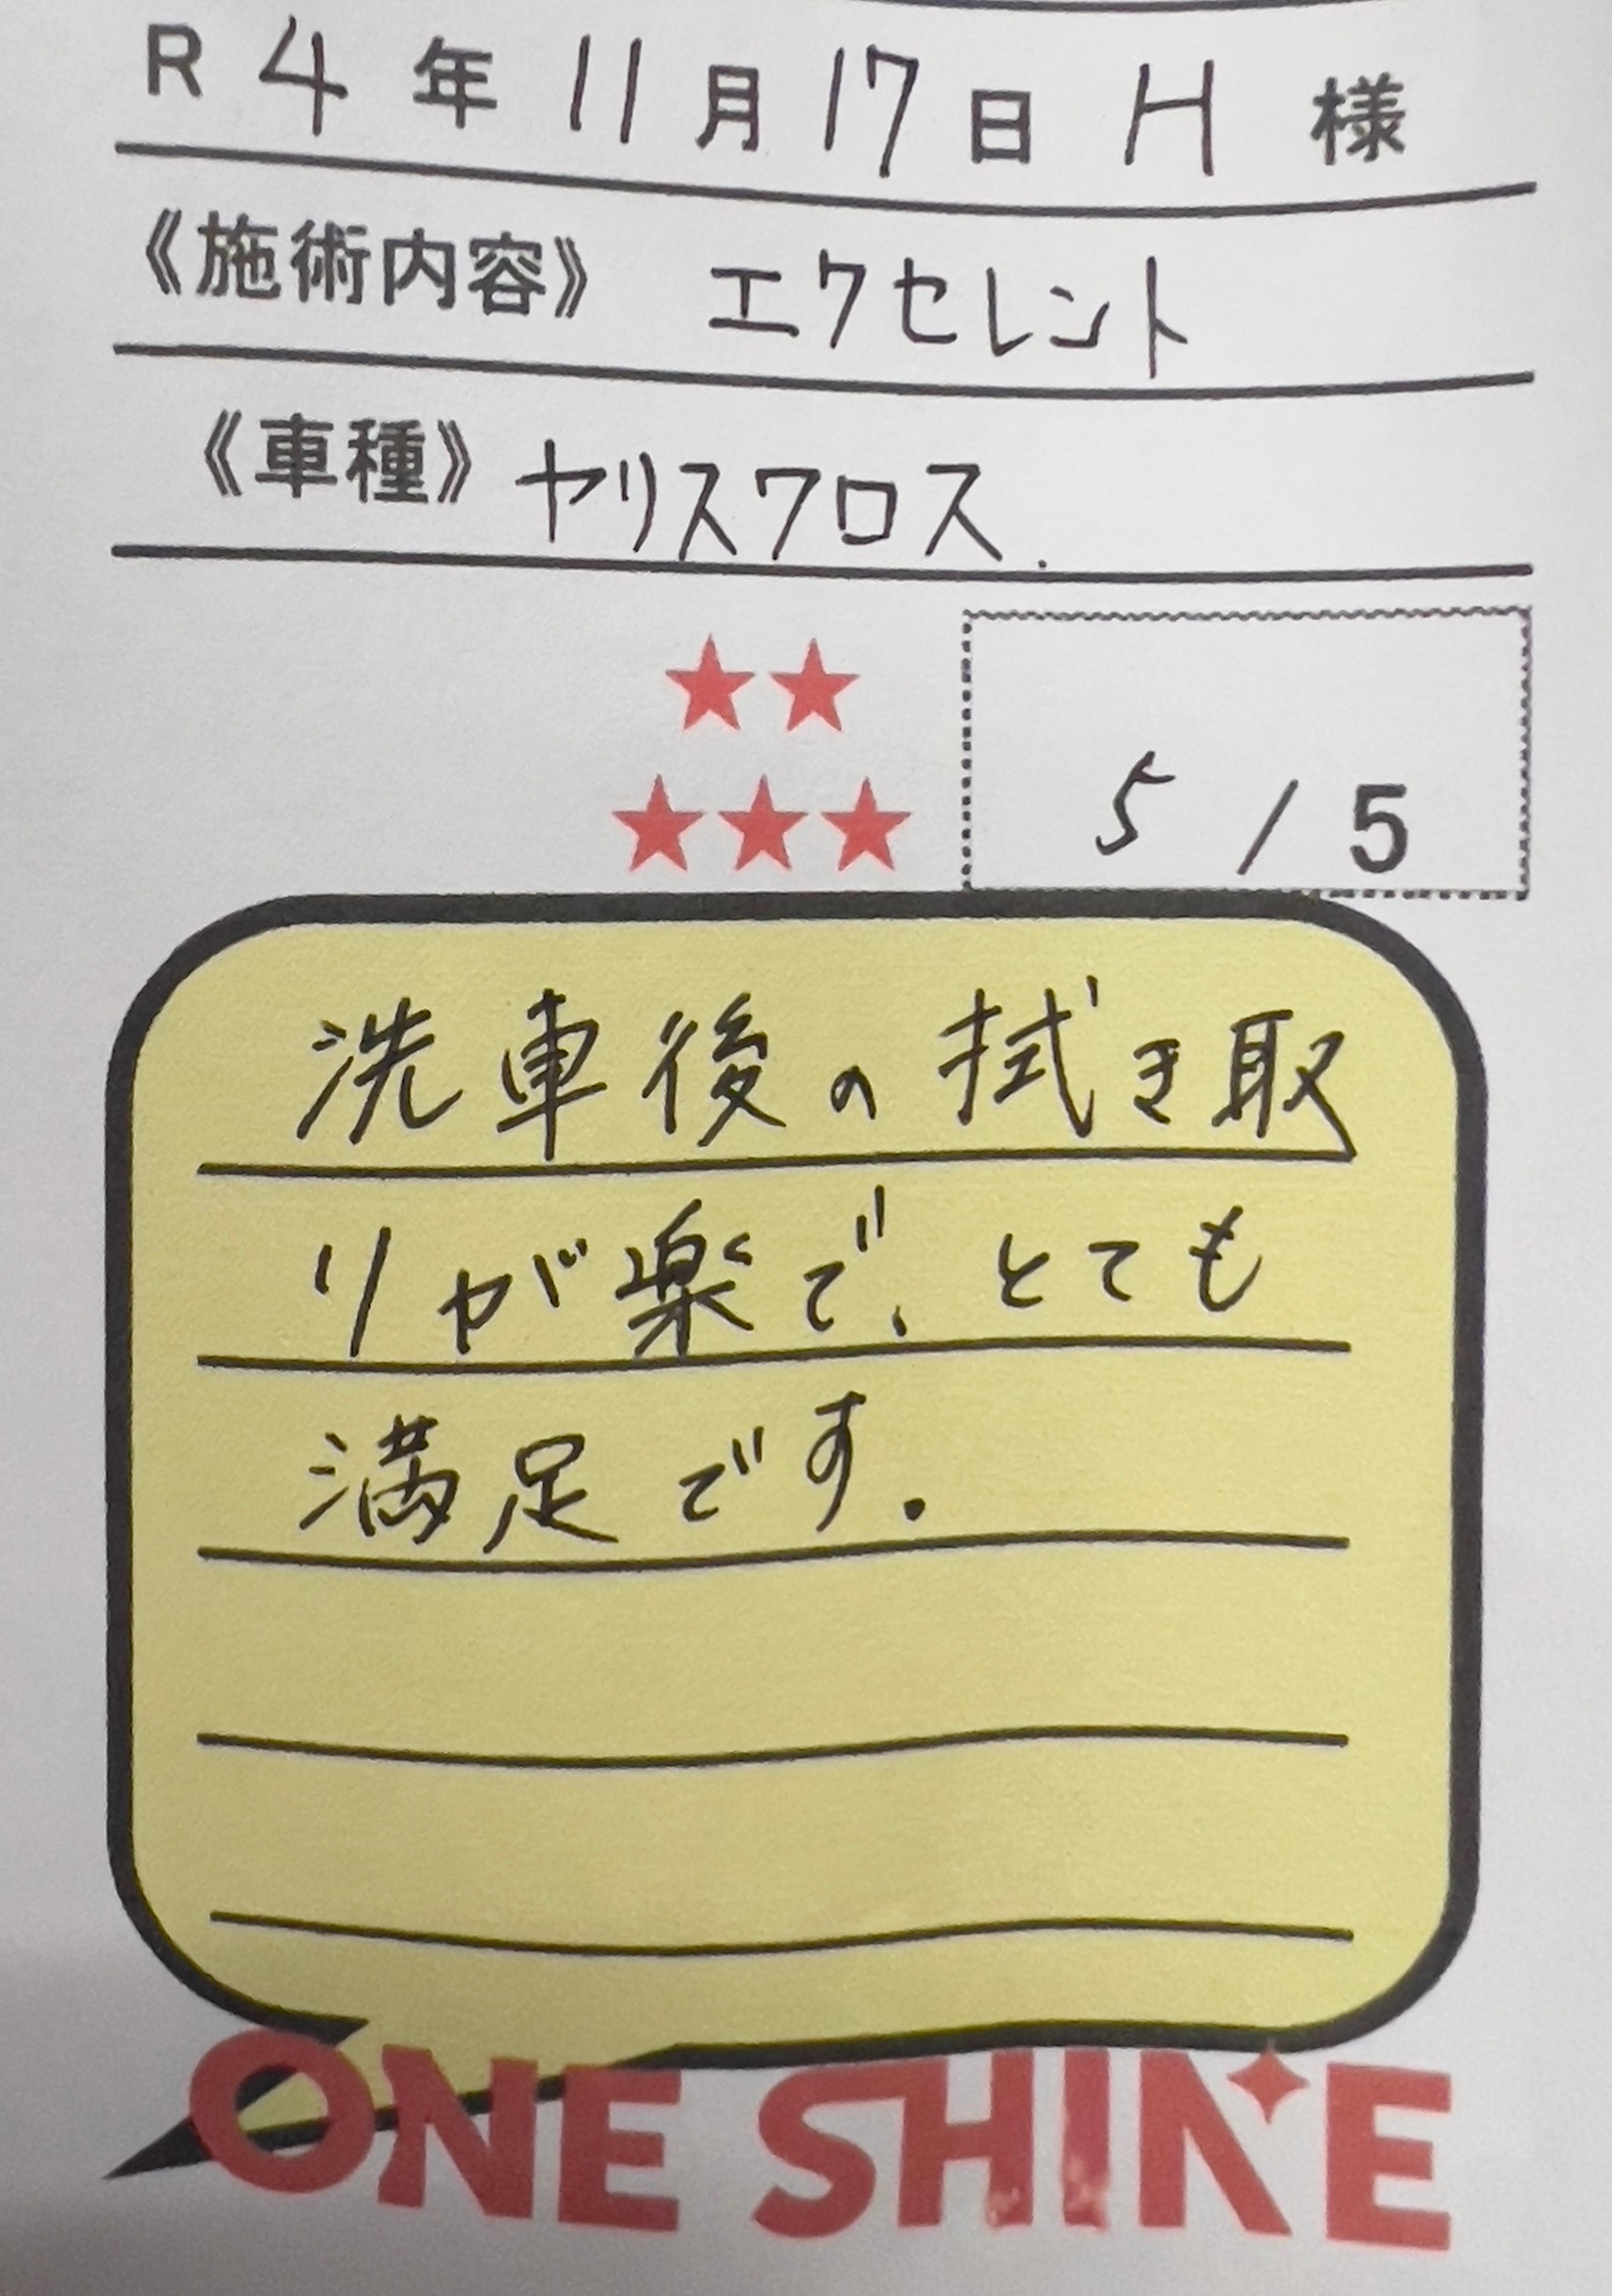 R 4 年 11 月 17 日 H 様
《施術内容》 エクセレント
《車種》 ヤリスクロス.
★★
★★★
5 / 5
洗車後の拭き取
りが楽で、とても
満足です.
ONE SHINE